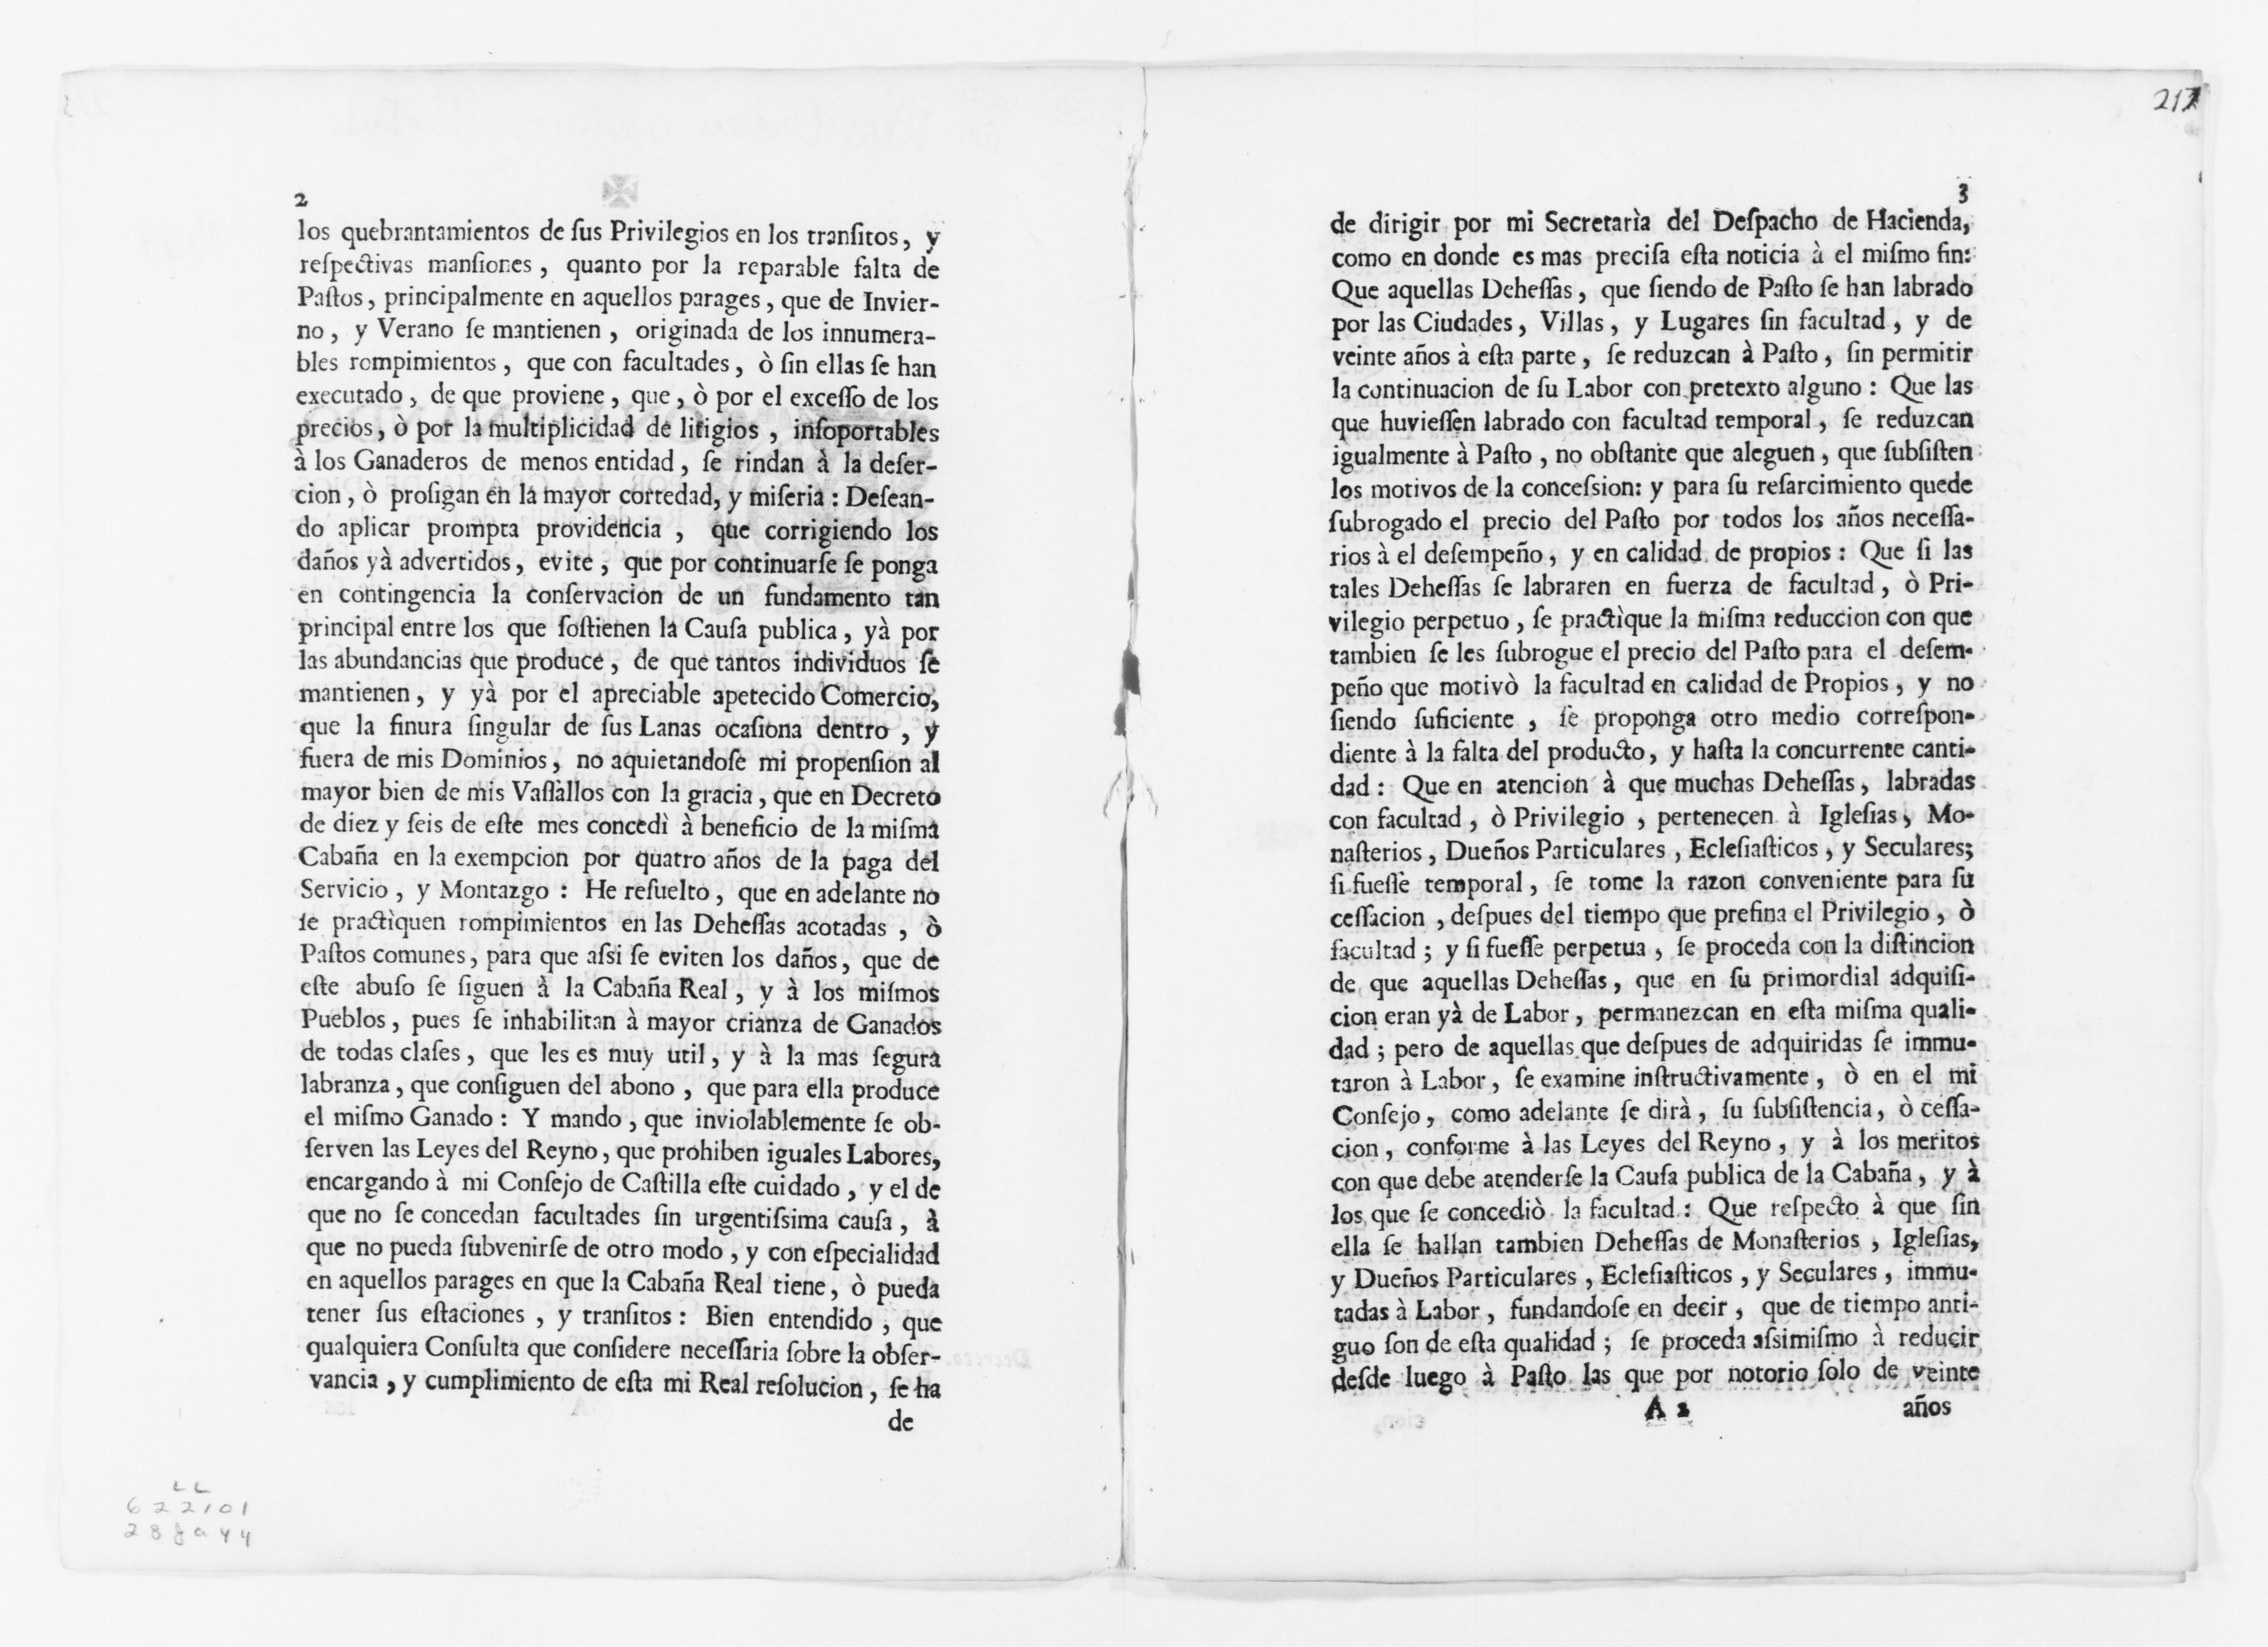 2
los quebrantamientos de ſus Privilegios en los tranſitos, y
reſpectivas manſiones, quanto por la reparable falta de
Paſtos, principalmente en aquellos parages, que de Invier-
no, y Verano ſe mantienen, originada de los innumera-
bles rompimientos, que con facultades, ò ſin ellas ſe han
executado, de que proviene, que, ò por el exceſſo de los
precios, ò por la multiplicidad de litigios, inſoportables
à los Ganaderos de menos entidad, ſe rindan à la deſer-
cion, ò proſigan en la mayor cortedad, y miſeria: Deſean-
do aplicar prompta providencia, que corrigiendo los
daños yà advertidos, evite, que por continuarſe ſe ponga
en contingencia la conſervacion de un fundamento tan
principal entre los que ſoſtienen la Cauſa publica, yà por
las abundancias que produce, de que tantos individuos ſe
mantienen, y yà por el apreciable apetecido Comercio,
que la finura ſingular de ſus Lanas ocaſiona dentro, y
fuera de mis Dominios, no aquietandoſe mi propenſion al
mayor bien de mis Vaſſallos con la gracia, que en Decreto
de diez y ſeis de eſte mes concedì à beneficio de la miſma
Cabaña en la exempcion por quatro años de la paga del
Servicio, y Montazgo: He reſuelto, que en adelante no
ſe practìquen rompimientos en las Deheſſas acotadas, ò
Paſtos comunes, para que aſsi ſe eviten los daños, que de
eſte abuſo ſe ſiguen à la Cabaña Real, y à los miſmos
Pueblos, pues ſe inhabilitan à mayor crianza de Ganados
de todas claſes, que les es muy util, y à la mas ſegura
labranza, que conſiguen del abono, que para ella produce
el miſmo Ganado: Y mando, que inviolablemente ſe ob-
ſerven las Leyes del Reyno, que prohiben iguales Labores,
encargando à mi Conſejo de Caſtilla eſte cuidado, y el de
que no ſe concedan facultades ſin urgentiſsima cauſa, à
que no pueda ſubvenirſe de otro modo, y con eſpecialidad
en aquellos parages en que la Cabaña Real tiene, ò pueda
tener ſus eſtaciones, y tranſitos: Bien entendido, que
qualquiera Conſulta que conſidere neceſſaria ſobre la obſer-
vancia, y cumplimiento de eſta mi Real reſolucion, ſe ha
de
LL
622101
28ja44
217
3
de dirigir por mi Secretarìa del Deſpacho de Hacienda,
como en donde es mas preciſa eſta noticia à el miſmo fin:
Que aquellas Deheſſas, que ſiendo de Paſto ſe han labrado
por las Ciudades, Villas, y Lugares ſin facultad, y de
veinte años à eſta parte, ſe reduzcan à Paſto, ſin permitir
la continuacion de ſu Labor con pretexto alguno: Que las
que huvieſſen labrado con facultad temporal, ſe reduzcan
igualmente à Paſto, no obſtante que aleguen, que ſubſiſten
los motivos de la conceſsion: y para ſu reſarcimiento quede
ſubrogado el precio del Paſto por todos los años neceſſa-
rios à el deſempeño, y en calidad de propios: Que ſi las
tales Deheſſas ſe labraren en fuerza de facultad, ò Pri-
vilegio perpetuo, ſe practìque la miſma reduccion con que
tambien ſe les ſubrogue el precio del Paſto para el deſem-
peño que motivò la facultad en calidad de Propios, y no
ſiendo ſuficiente, ſe proponga otro medio correſpon-
diente à la falta del producto, y haſta la concurrente canti-
dad: Que en atencion à que muchas Deheſſas, labradas
con facultad, ò Privilegio, pertenecen à Igleſias, Mo-
naſterios, Dueños Particulares, Ecleſiaſticos, y Seculares;
ſi fueſſe temporal, ſe tome la razon conveniente para ſu
ceſſacion, deſpues del tiempo que prefina el Privilegio, ò
facultad; y ſi fueſſe perpetua, ſe proceda con la diſtincion
de que aquellas Deheſſas, que en ſu primordial adquiſi-
cion eran yà de Labor, permanezcan en eſta miſma quali-
dad; pero de aquellas que deſpues de adquiridas ſe immu-
taron à Labor, ſe examine inſtructivamente, ò en el mi
Conſejo, como adelante ſe dirà, ſu ſubſiſtencia, ò ceſſa-
cion, conforme à las Leyes del Reyno, y à los meritos
con que debe atenderſe la Cauſa publica de la Cabaña, y à
los que ſe concediò la facultad: Que reſpecto à que ſin
ella ſe hallan tambien Deheſſas de Monaſterios, Igleſias,
y Dueños Particulares, Ecleſiaſticos, y Seculares, immu-
tadas à Labor, fundandoſe en decir, que de tiempo anti-
guo ſon de eſta qualidad; ſe proceda aſsimiſmo à reducir
deſde luego à Paſto las que por notorio ſolo de veinte
A 2 años